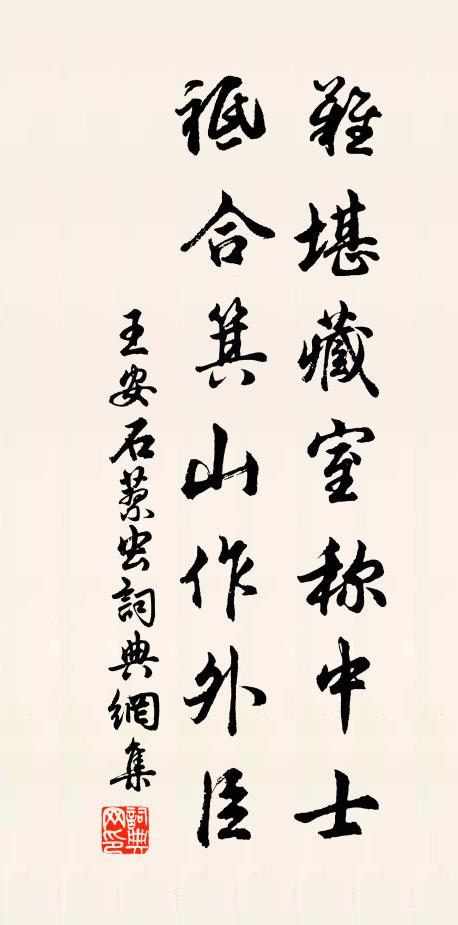 難堪藏室称中士
祗合箕山作外臣
王安石蔡虫詞典網集
詞典网印